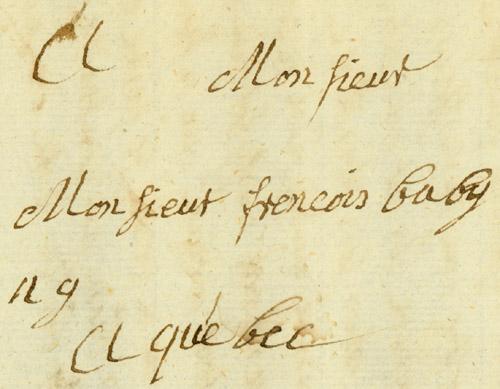 A Monsieur
Monsieur frencois baby
n g
A québec